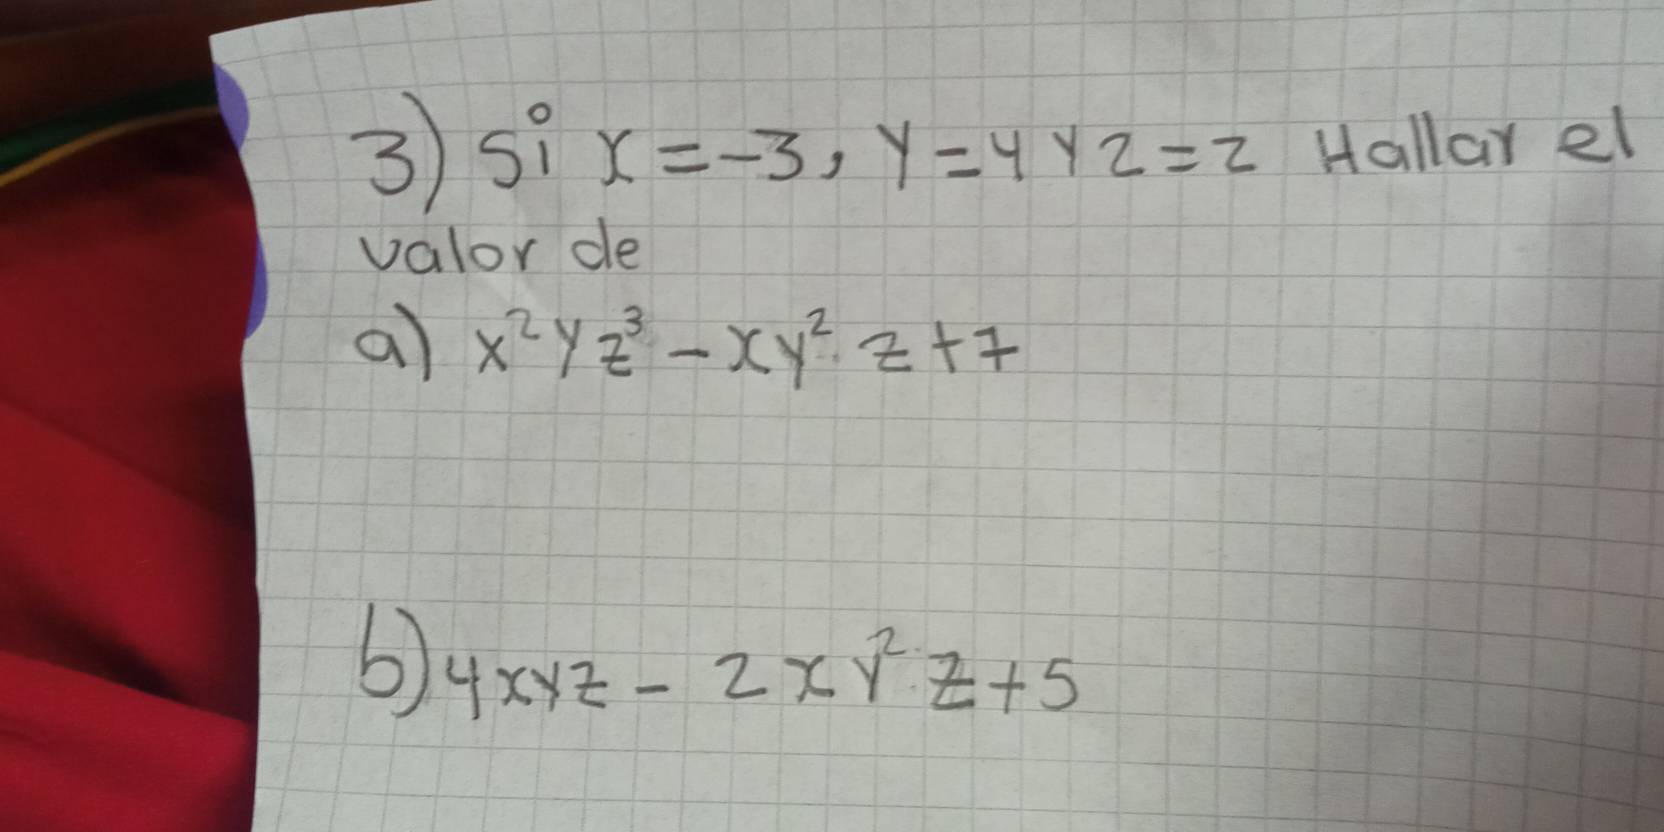 3) Si x = -3, y = 4 y z = 2 Hallar el
valor de
a) x²yz³ - xy² z + 7
b) 4xyz - 2xy² z + 5